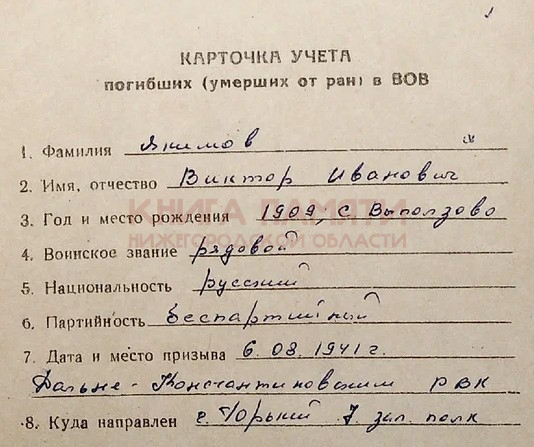 КАРТОЧКА УЧЕТА
погибших (умерших от ран) в ВОВ
1. Фамилия Якимов
2. Имя, отчество Виктор Иванович
КНИГА ПАМЯТИ
3. Год и место рождения 1909, с Выползово
НИЖЕГОРОДСКОЙ ОБЛАСТИ
4. Воинское звание рядовой
5. Национальность русский
6. Партийность беспартийный
7. Дата и место призыва 6.08.1941 г.
Дальне-Константиновским РВК
8. Куда направлен г. Горький 7. зап. полк